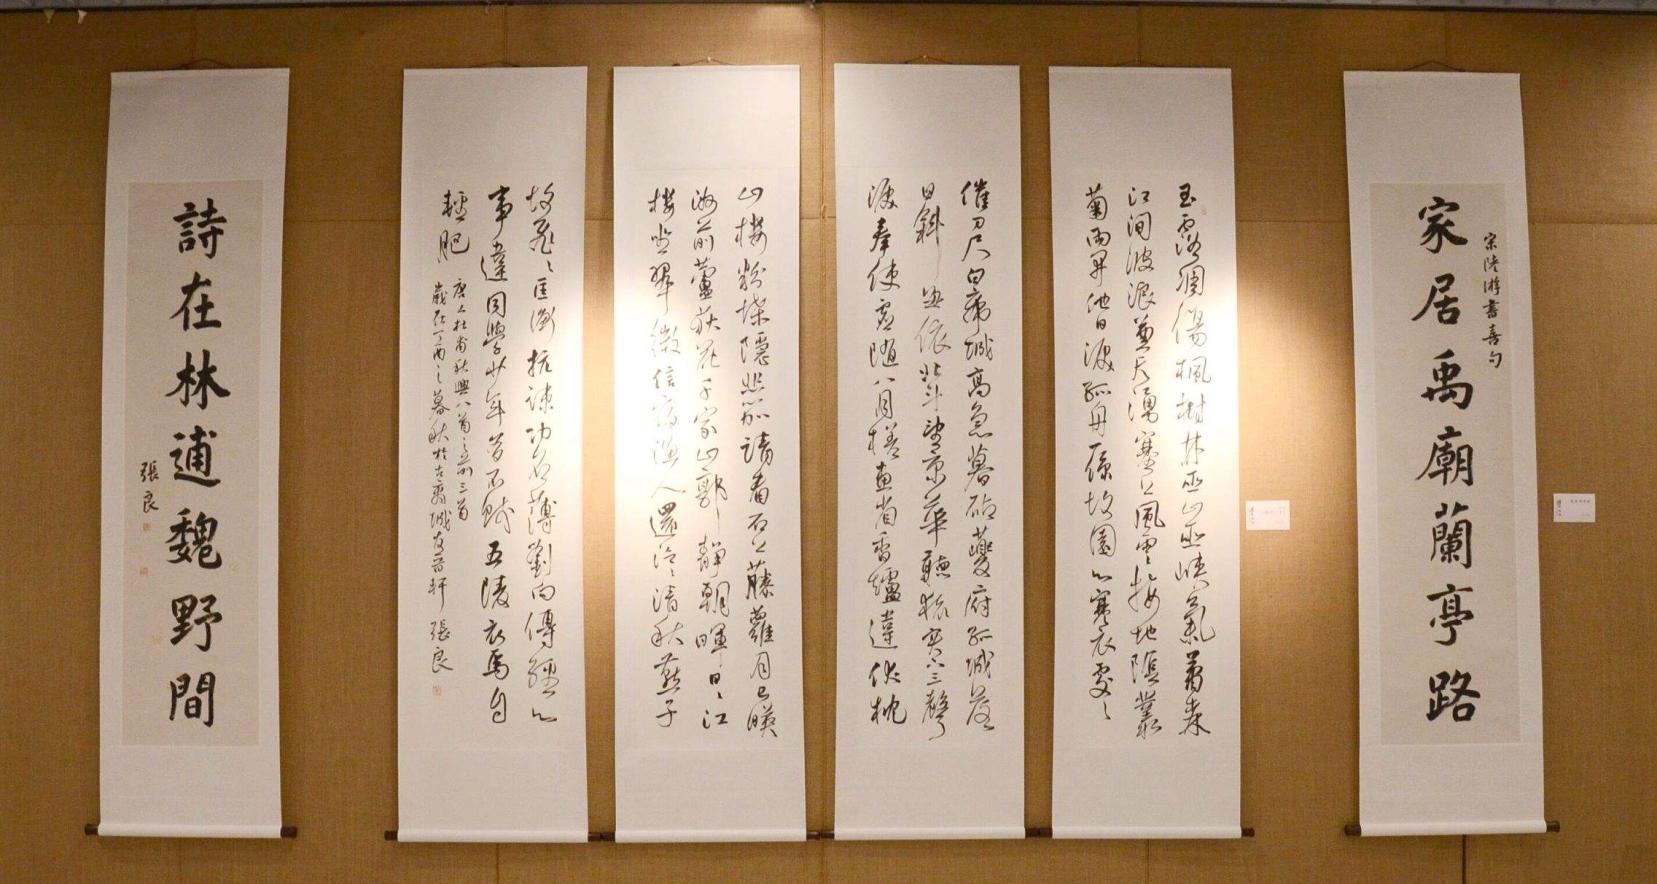 宋陸游書喜句
家居禹廟蘭亭路
玉露凋傷楓樹林巫山巫峽氣蕭森
江間波浪兼天湧塞上風雲接地陰叢
菊兩開他日淚孤舟一係故園心寒衣處〻
催刀尺白帝城高急暮砧夔府孤城落
日斜每依北斗望京華聽猿實下三聲
淚奉使虛隨八月槎畫省香爐違伏枕
山樓粉堞隱悲笳請看石上藤蘿月已映
洲前蘆荻花千家山郭靜朝暉日〻江
樓坐翠微信宿漁人還泛〻清秋燕子
故飛〻匡衡抗疏功名薄劉向傳經心
事違同學少年多不賤五陵衣馬自
輕肥
唐人杜甫秋興八首之前三首
歲在之暮秋於古城軒
張良
詩在林逋魏野間
張良